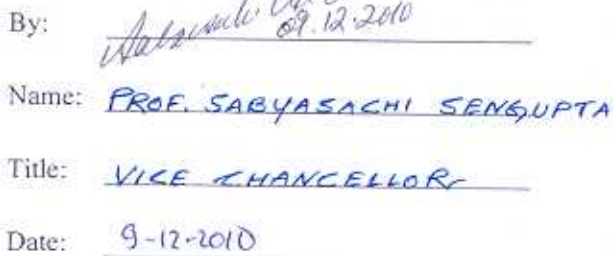 By: 09.12.2010
Name: PROF. SABYASACHI SENGUPTA
Title: VICE CHANCELLOR
Date: 9-12-2010